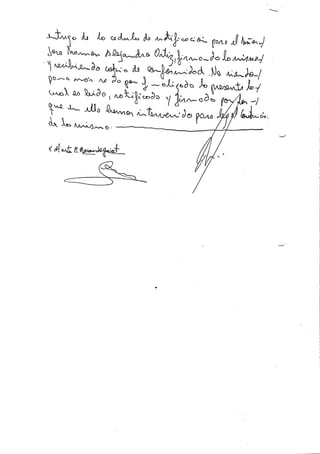 entrego de la cedula de notificación para el Señor
Jose Ramon Alejandro Ortiz, firmando la misma
y recibiendo copia de conformidad. No siendo
para mas se da por finalizado la presente la
cual es leida, ratificada y firmada por los
que en ella hemos intervenido para legal constancia.
de la misma.
Marta E.